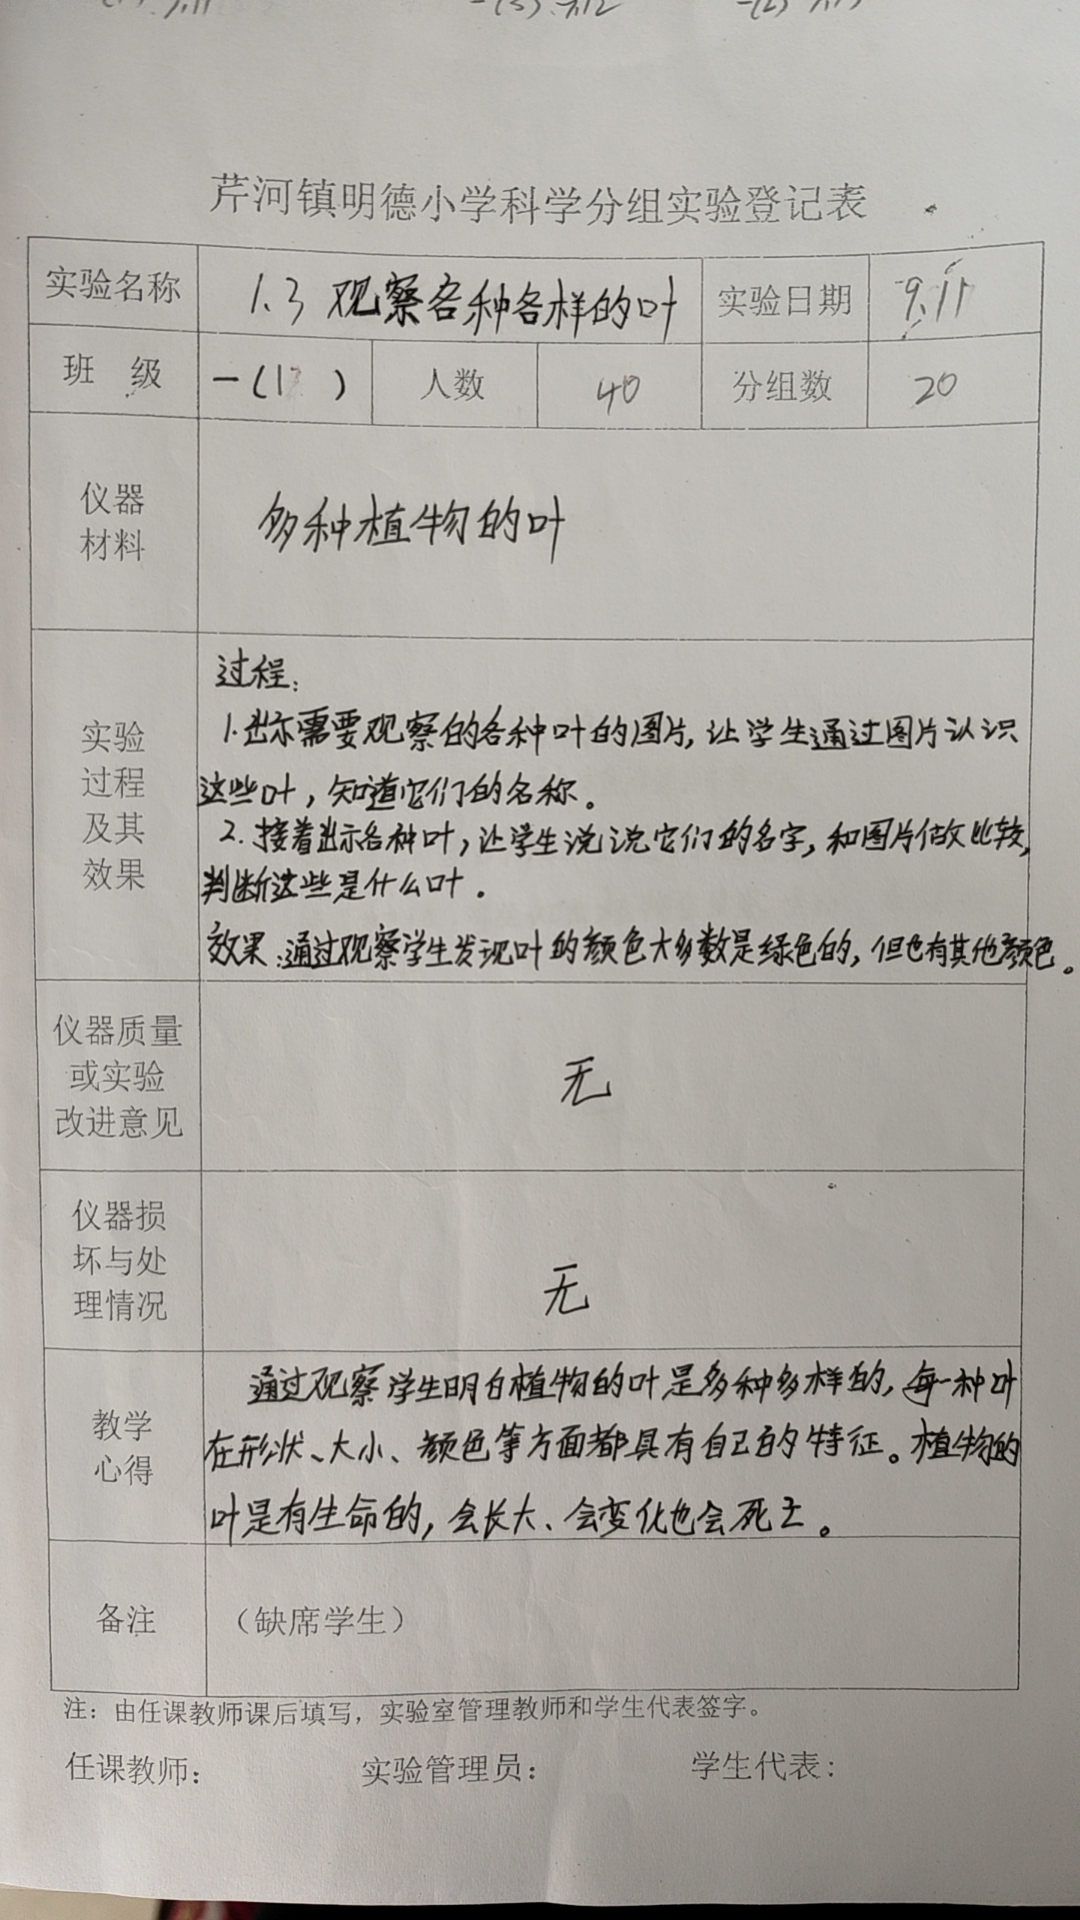 芹河镇明德小学科学分组实验登记表
实验名称 1.3 观察各种各样的叶 实验日期 9.11
班 级 一(1 ) 人数 40 分组数 20
仪器
材料
多种植物的叶
实验
过程
及其
效果
过程:
1.出示需要观察的各种叶的图片,让学生通过图片认识
这些叶,知道它们的名称。
2.接着出示各种叶,让学生说说它们的名字,和图片做比较,
判断这些是什么叶.
效果:通过观察学生发现叶的颜色大多数是绿色的,但也有其他颜色。
仪器质量
或实验
改进意见
无
仪器损
坏与处
理情况
无
教学
心得
通过观察学生明白植物的叶是多种多样的,每一种叶
在形状、大小、颜色等方面都具有自己的特征。植物的
叶是有生命的,会长大、会变化也会死亡。
备注 (缺席学生)
注:由任课教师课后填写,实验室管理教师和学生代表签字。
任课教师: 实验管理员: 学生代表: